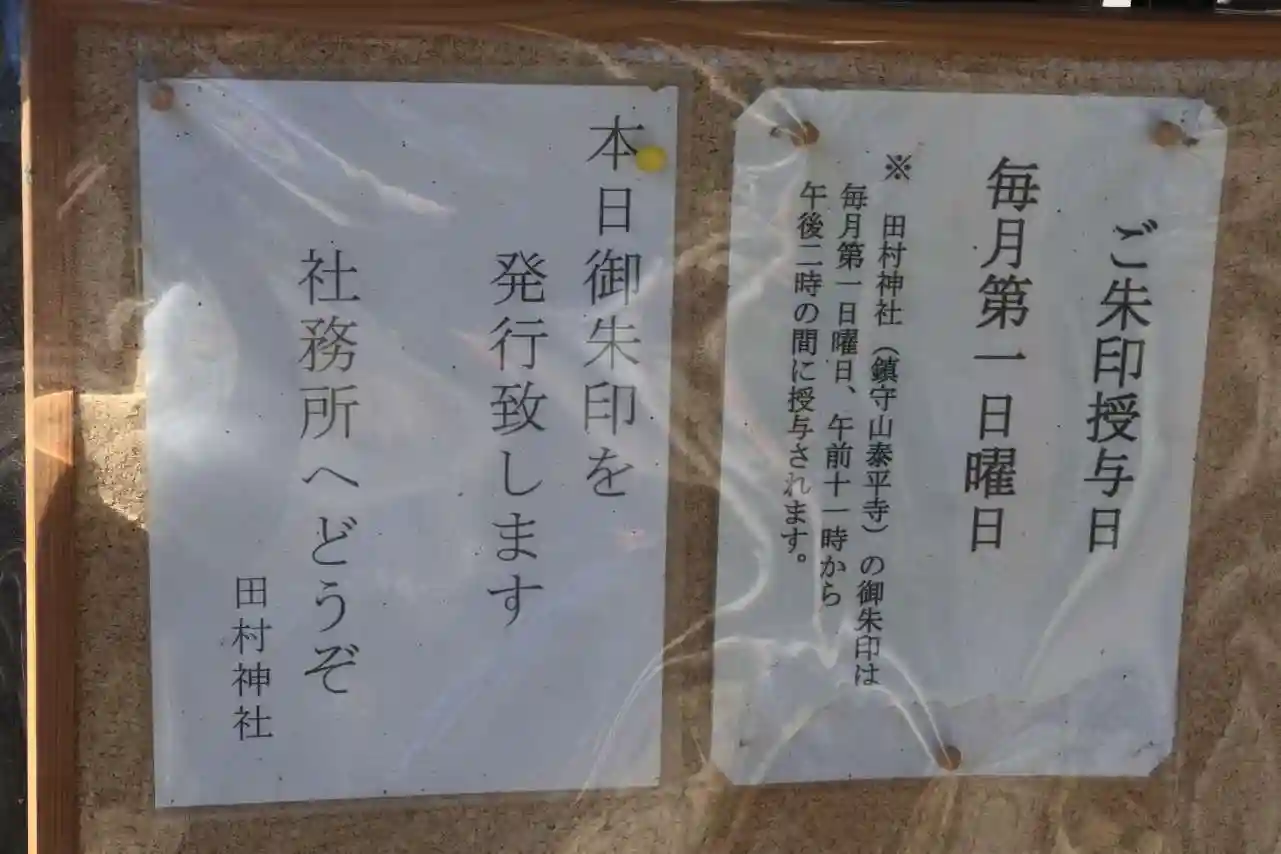 ご朱印授与日
毎月第一日曜日
※ 田村神社（鎮守山泰平寺）の御朱印は
毎月第一日曜日、午前十一時から
午後二時の間に授与されます。
本日御朱印を
発行致します
社務所へどうぞ
田村神社